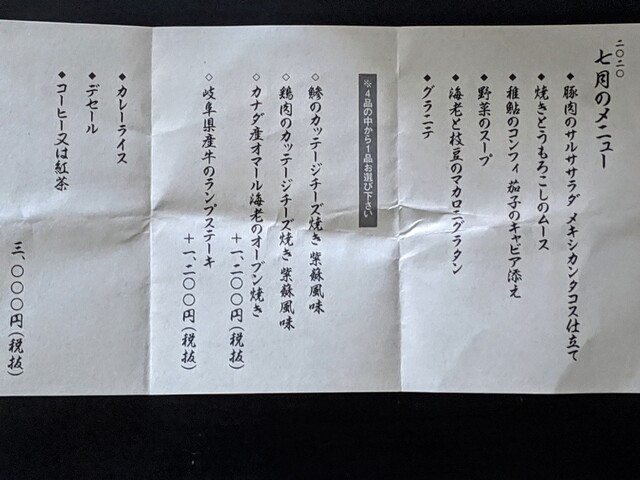 二〇二〇
七月のメニュー
◆豚肉のサルササラダ メキシカンタコス仕立て
◆焼きとうもろこしのムース
◆稚鮎のコンフィ 茄子のキャビア添え
◆野菜のスープ
◆海老と枝豆のマカロニグラタン
◆グラニテ
※4品の中から1品お選び下さい
◇鯵のカッテージチーズ焼き 紫蘇風味
◇鶏肉のカッテージチーズ焼き 紫蘇風味
◇カナダ産オマール海老のオーブン焼き
+一、二〇〇円(税抜)
◇岐阜県産牛のランプステーキ
+一、二〇〇円(税抜)
◆カレーライス
◆デセール
◆コーヒー又は紅茶
三、〇〇〇円(税抜